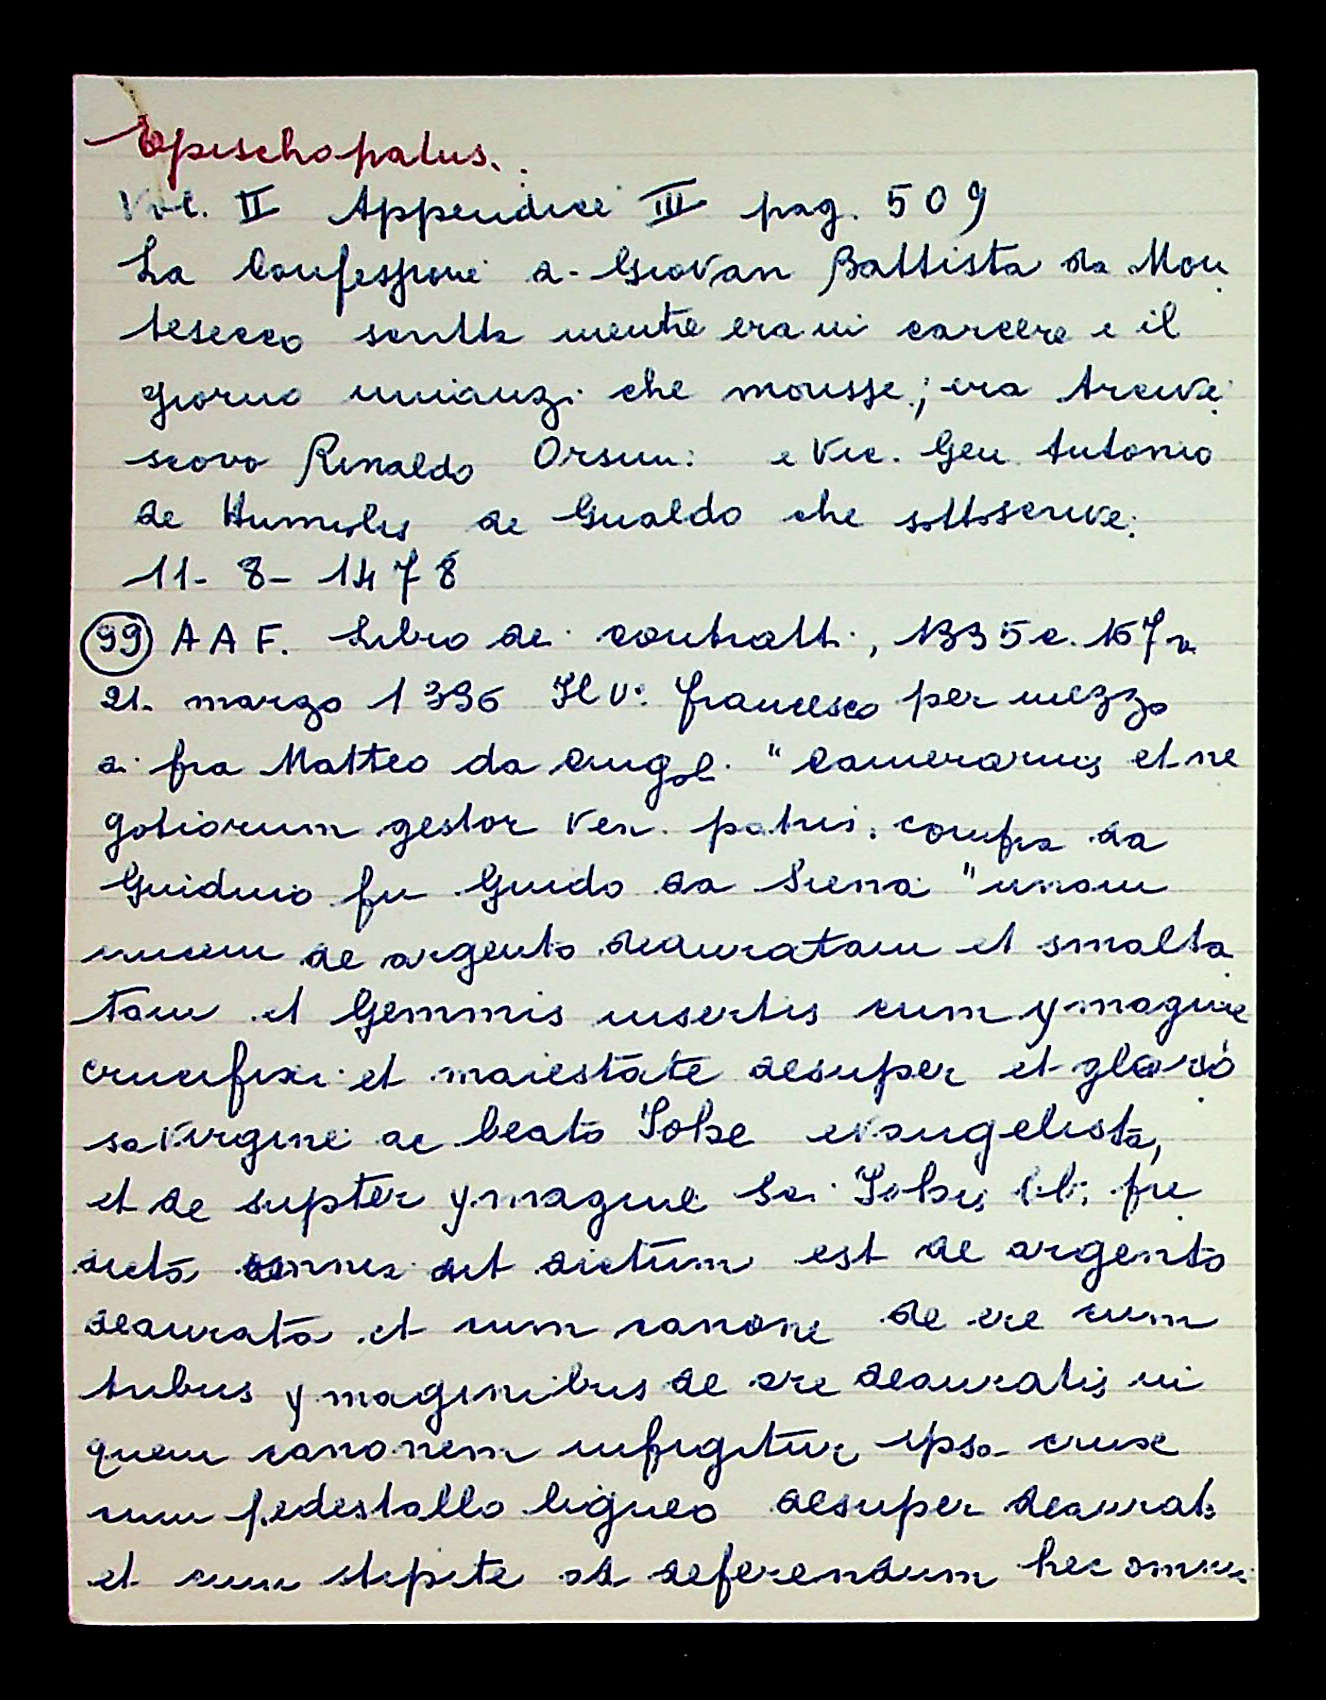 Epischopatus.
Vol. II Appendice III pag. 509
La Confessione di Giovan Battista da Mon
tesecco scritta mentre era in carcere e il
giorno innanzi che morisse; era Arcive
scovo Rinaldo Orsini e Vic. Gen. Antonio
de Humilis de Gualdo che sottoscrive.
11-8-1478
99 AAF. Libro dei contratti, 1395 c. 167v
21. marzo 1396 Il V. Francesco per mezzo
di fra Matteo da Cingol. "Camerarius et ne
gotiorum gestor Ven. patris. compra da
Guiduccio fu Guido da Siena "unam
crucem de argento deauratam et smalta
tam et Gemmis insertis cum ymagine
crucifixi et maiestate desuper et glorio
sa Virgine ac beato Johe evangelista,
et de supter ymagine Sci. Johis bt; pre
dicta omnia ut dictum est de argento
deaurato et cum canone de ere cum
tribus ymaginibus de ere deauratis in
quem canonem infigitur ipsa crux
cum pedestallo ligneo desuper deaurato
et cum stipite ad deferendum hec omnia